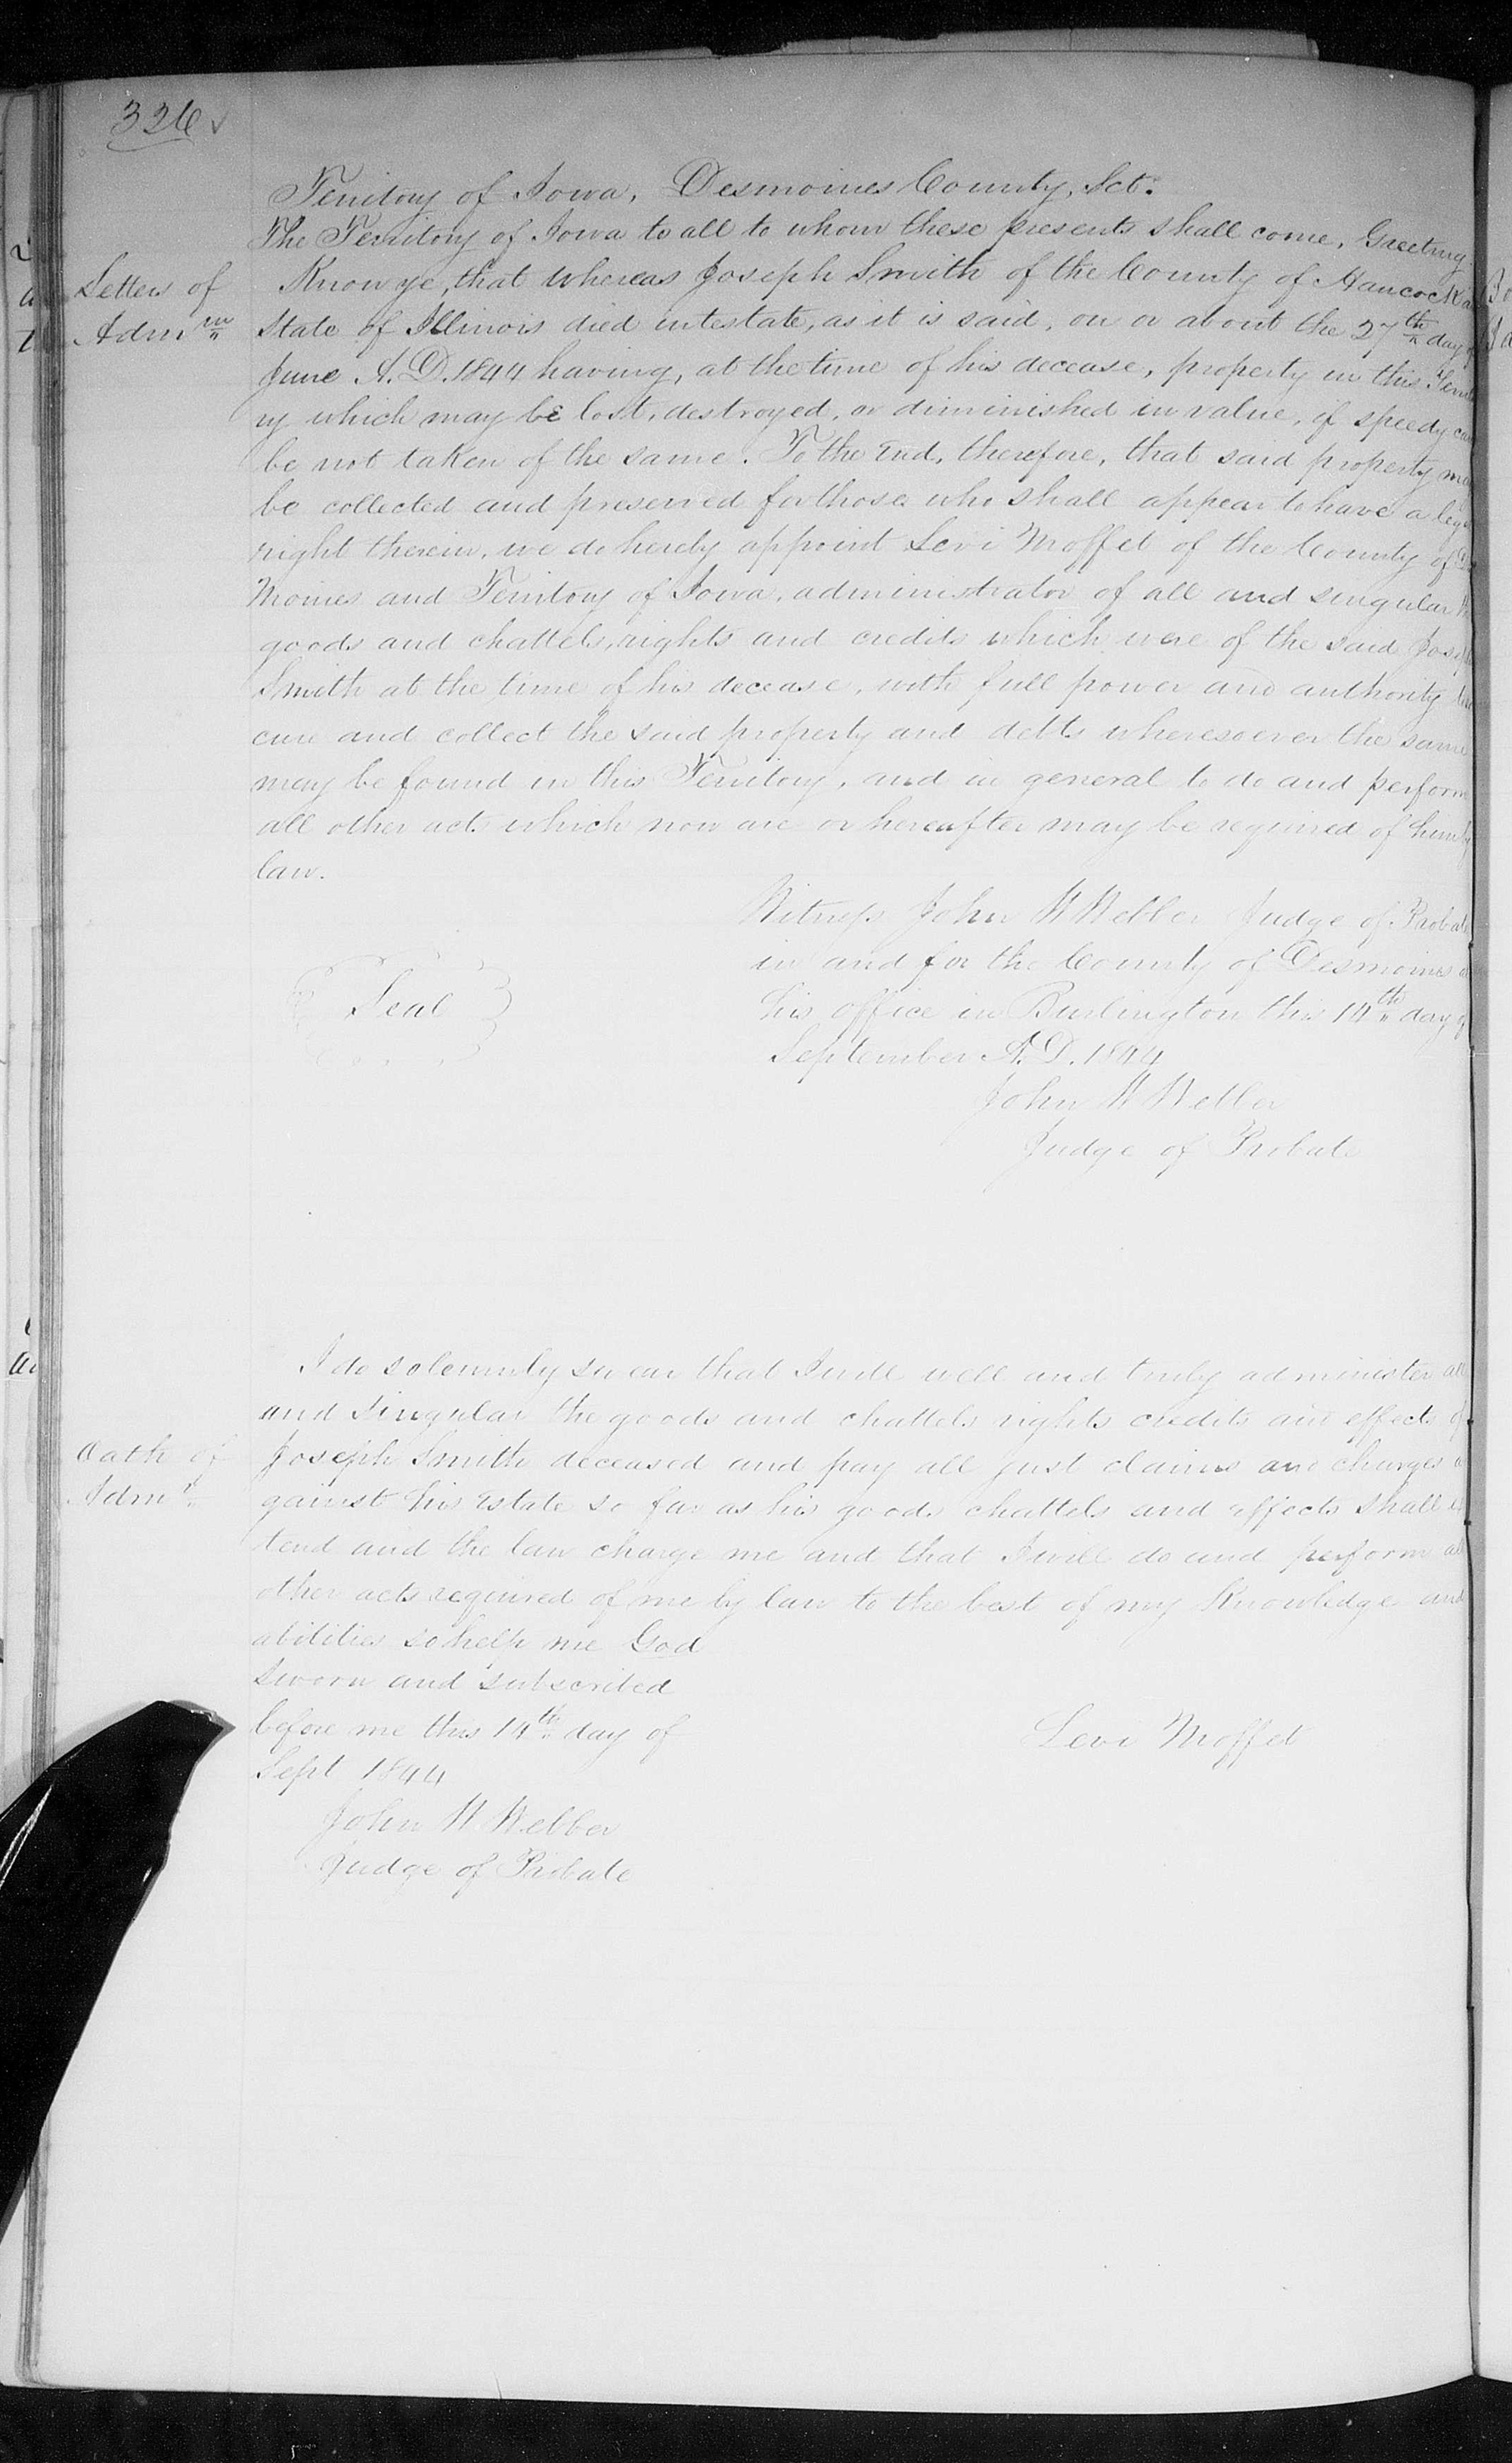 326 ✓
Territory of Iowa, Desmoines County, Sct.
The Territory of Iowa to all to whom these presents shall come, Greeting.
Letters of
Admn
Know ye, that whereas Joseph Smith of the County of Hancock a
State of Illinois died intestate, as it is said, on or about the 27th day of
June A.D. 1844 having, at the time of his decease, property in this Territo
ry which may be lost, destroyed, or diminished in value, if speedy care
be not taken of the same. To the End, therefore, that said property may
be collected and preserved for those who shall appear to have a legal
right therein, we do hereby appoint Levi Moffet of the County of Des
Moines and Territory of Iowa, administrator of all and singular the
goods and chattels, rights and credits which were of the said Joseph
Smith at the time of his decease, with full power and authority to se
cure and collect the said property and debts wheresoever the same
may be found in this Territory, and in general to do and perform
all other acts which now are or hereafter may be required of him by
law.
Witness John W Webber Judge of Probate
in and for the County of Desmoines a
Seal
his office in Burlington this 14th day of
September A.D. 1844
John W Webber
Judge of Probate
I do solemnly swear that I will well and truly administer all
and singular the goods and chattels rights credits and effects of
Oath of
Admr
Joseph Smith deceased and pay all just claims and charges a
gainst his Estate so far as his goods chattels and effects shall ex
tend and the law charge me and that I will do and perform all
other acts required of me by law to the best of my Knowledge and
abilities so help me God
Sworn and subscribed
before me this 14th day of
Sept 1844
Levi Moffet
John W Webber
Judge of Probate